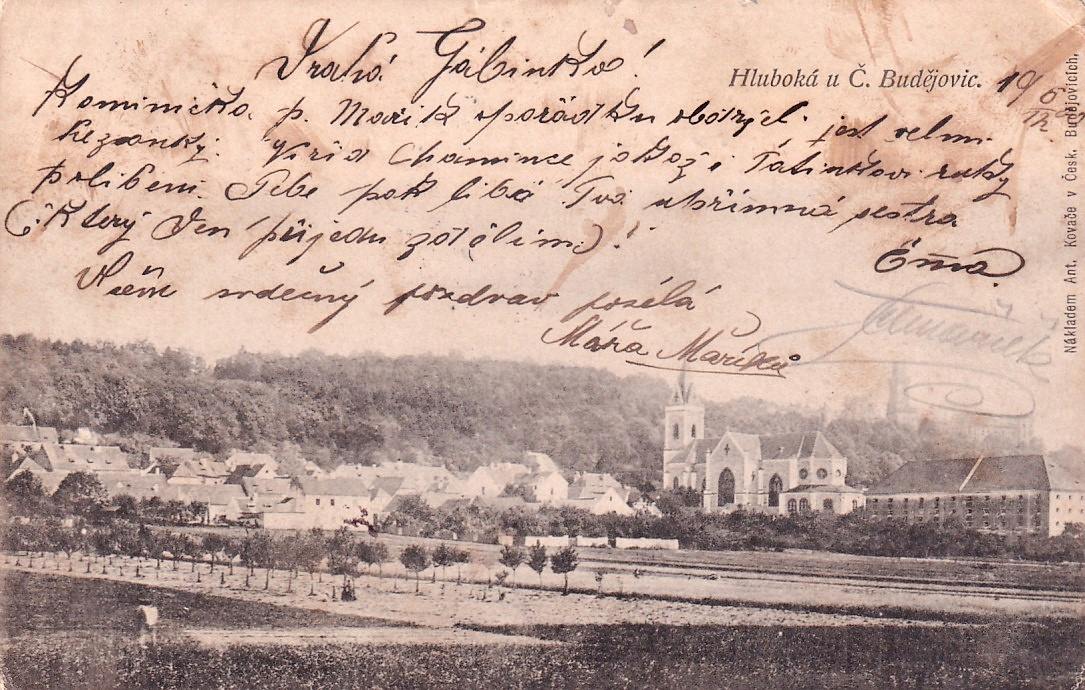 Drahá Gábinko!
Hluboká u Č. Budějovic.
19 6/12
Kominíčka p. Mařík spořádku obdržel jest velmi
hezounký. Viď Mamince jakož i Tatínkovi ruky
políbem. Tebe pak líbá Tvá upřímná sestra
(Který den přijedu zdělím)!
Ema
Všem srdečný pozdrav posílá
Máňa Maříků
Nákladem Ant. Kovače v Česk. Budějovicích,